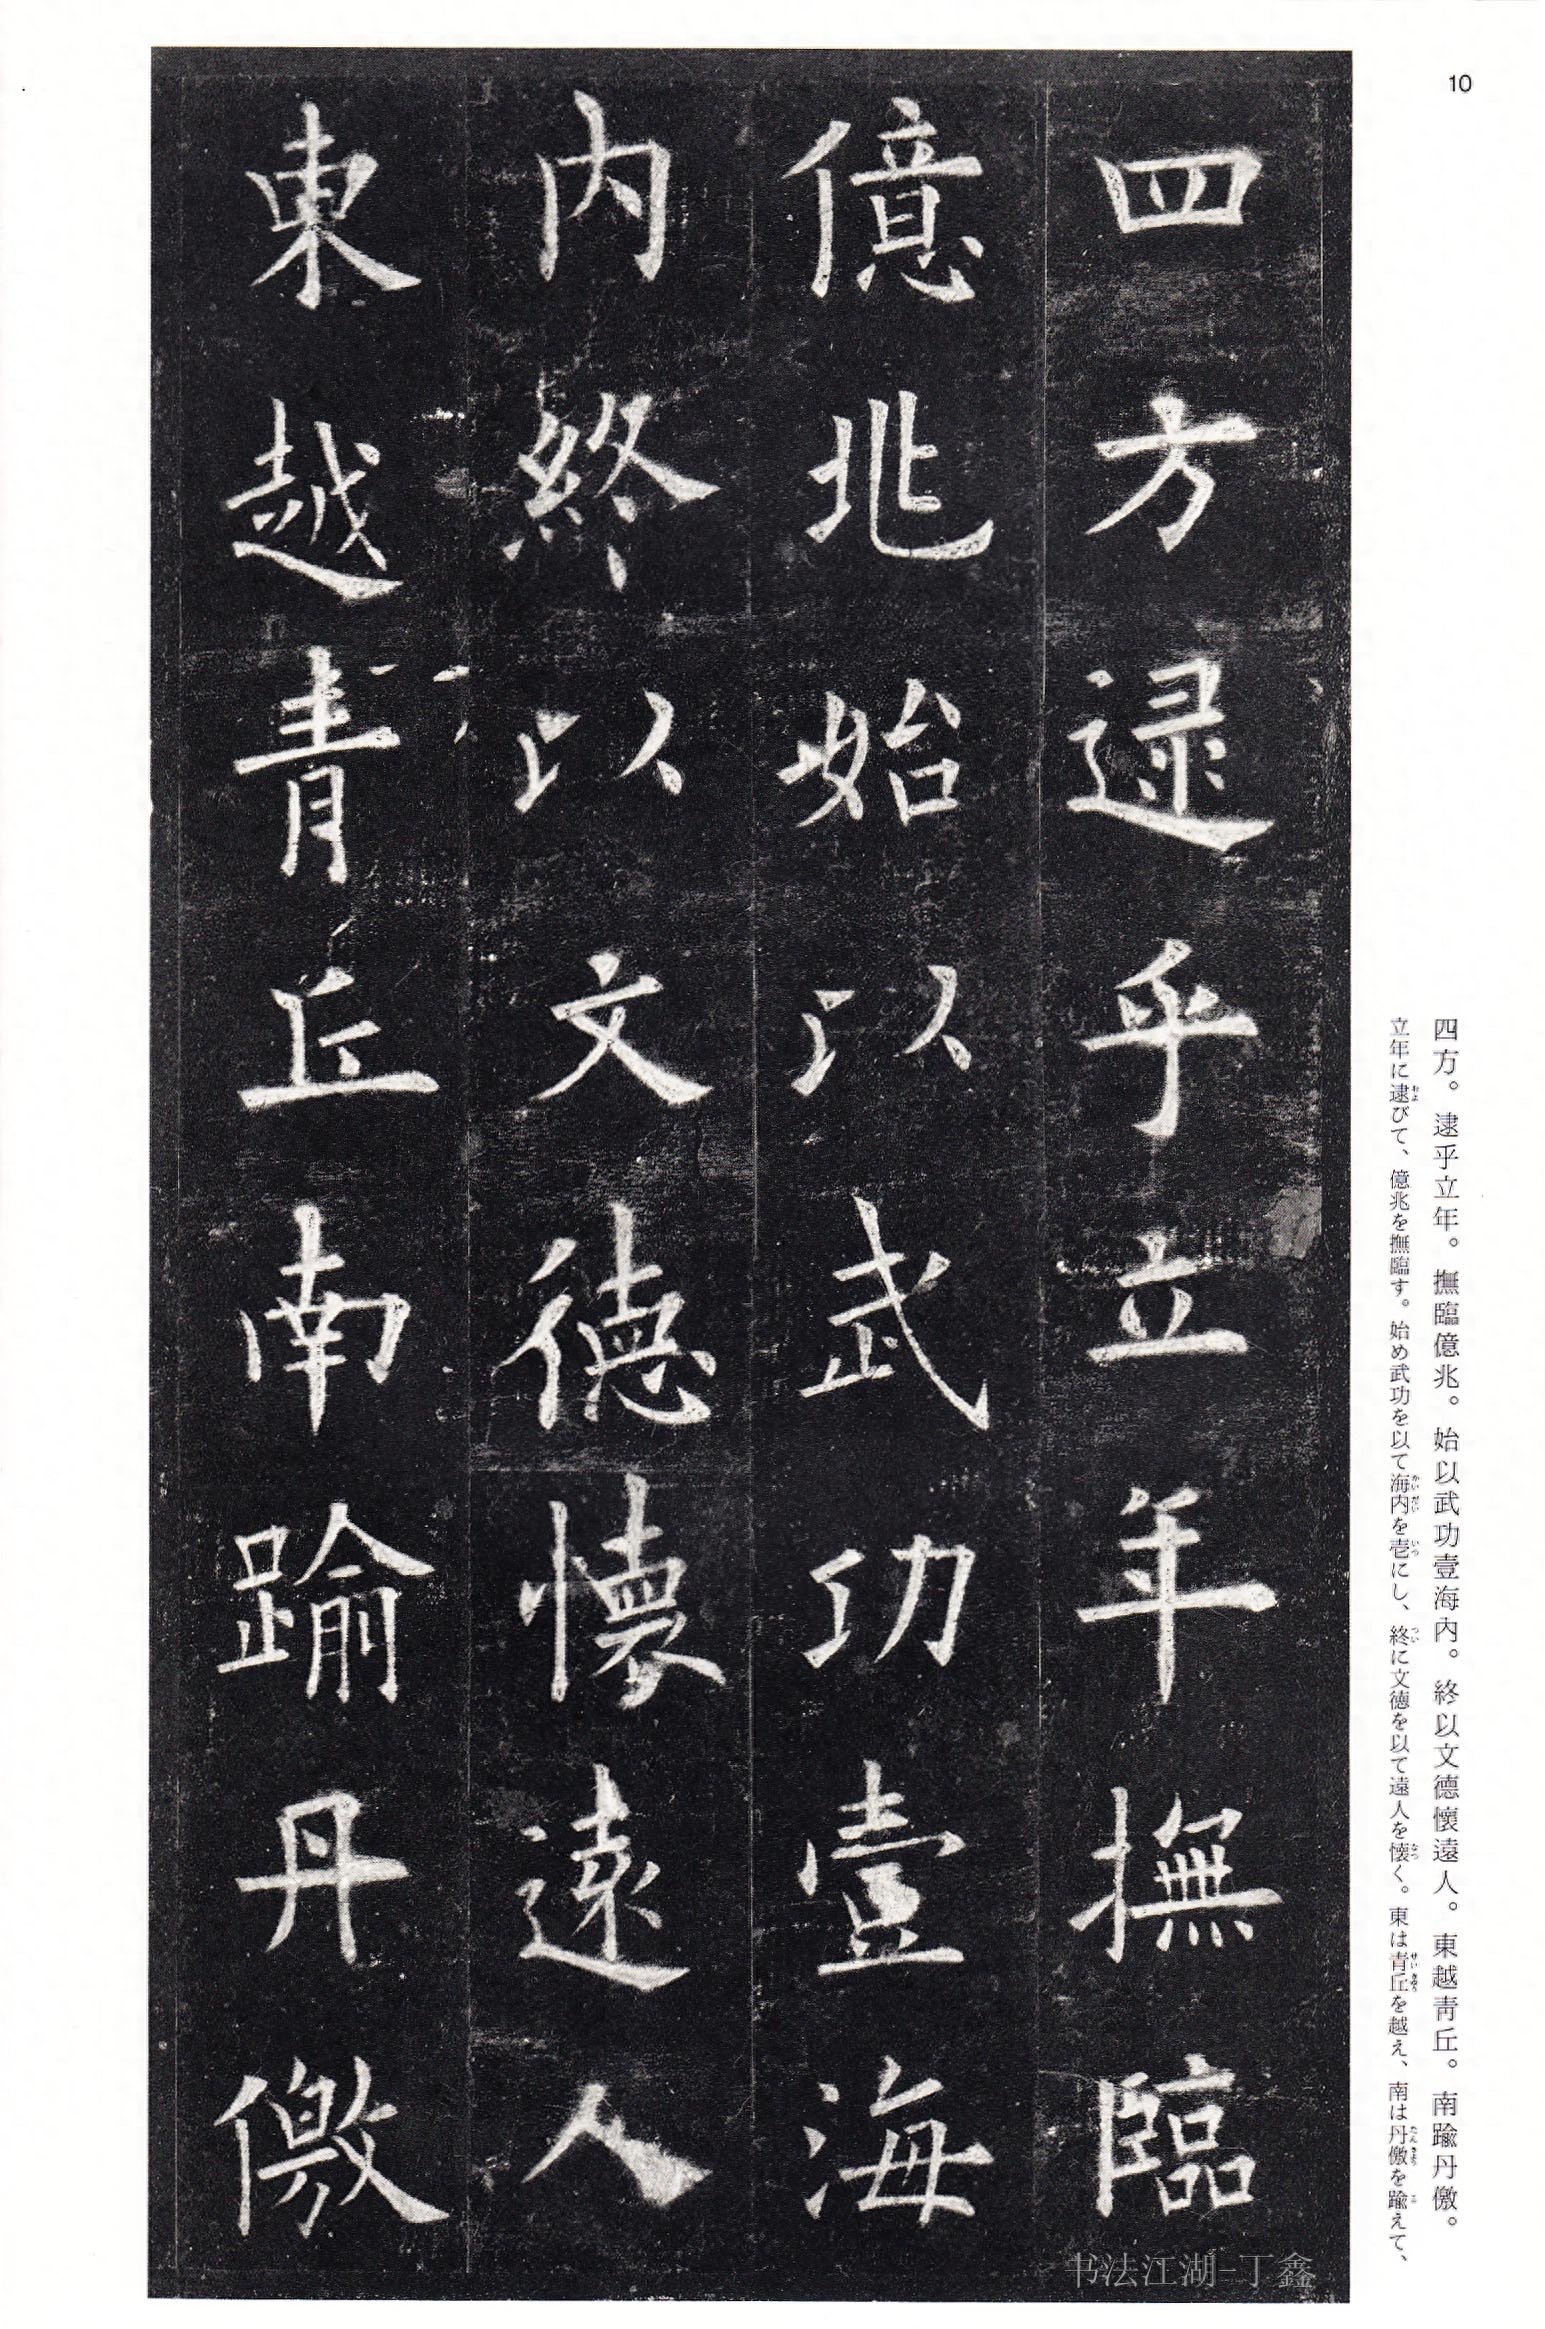 10
四方。逮乎立年。撫臨億兆。始以武功壹海内。終以文德懷遠人。東越青丘。南踰丹儌。
立年に逮びて、億兆を撫臨す。始め武功を以て海内を壱にし、終に文徳を以て遠人を懐く。東は青丘を越え、南は丹儌を踰えて、
四方逮乎立年撫臨
億兆始以武功壹海
内終以文德懷遠人
東越青丘南踰丹儌
书法江湖-丁鑫